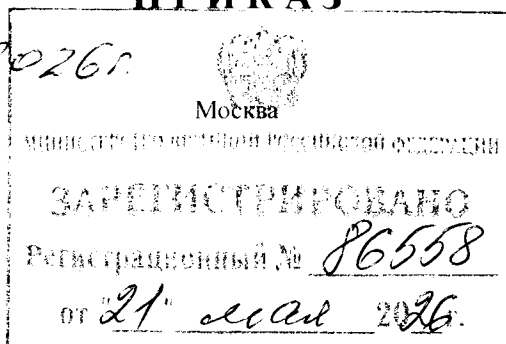 ПРИКАЗ
2026г.
Москва
МИНИСТЕРСТВО ЮСТИЦИИ РОССИЙСКОЙ ФЕДЕРАЦИИ
ЗАРЕГИСТРИРОВАНО
Регистрационный № 86558
от "21" мая 2026г.